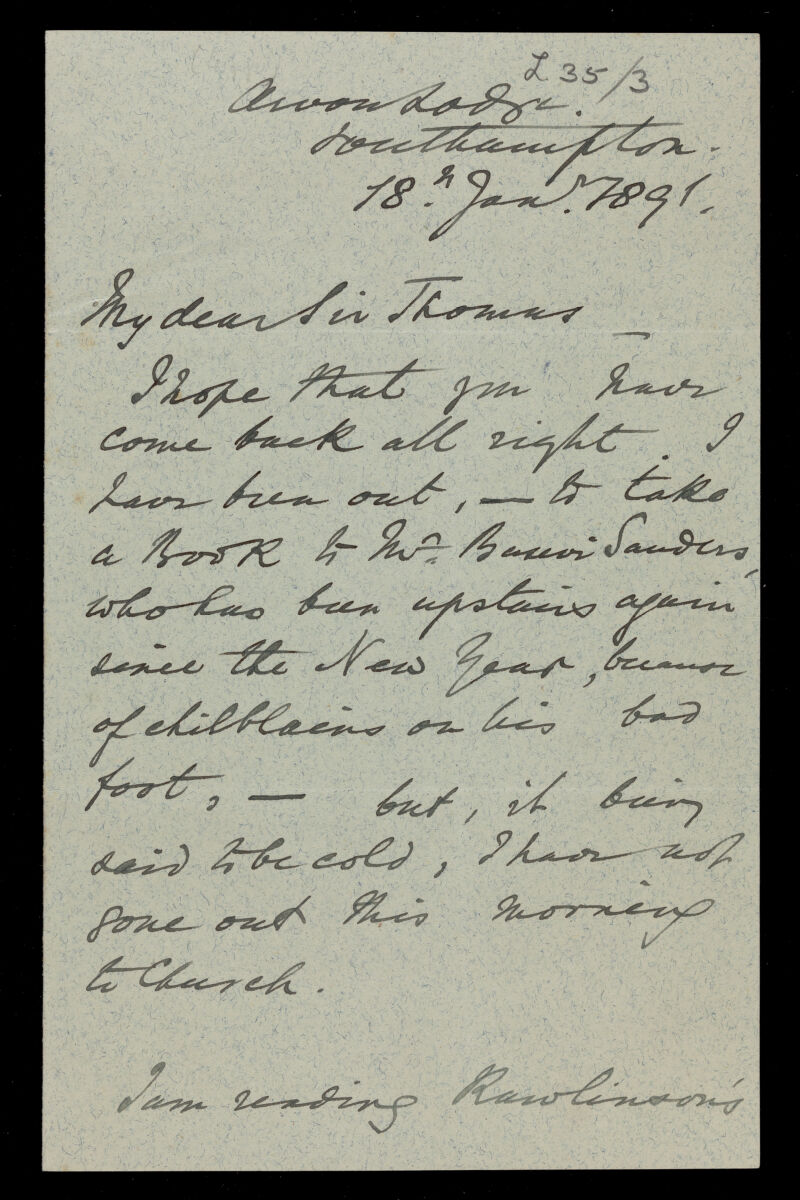 L 35/3
Avon Lodge.
Southampton.
18.h Jany. 1891.
My dear Sir Thomas —
I hope that you have
come back all right. I
have been out, — to take
a Book to Mr. Basevi Sanders,
who has been upstairs again
since the New Year, because
of chilblains on his bad
foot, — but, it being
said to be cold, I have not
gone out this morning
to Church.
I am reading Rawlinson's